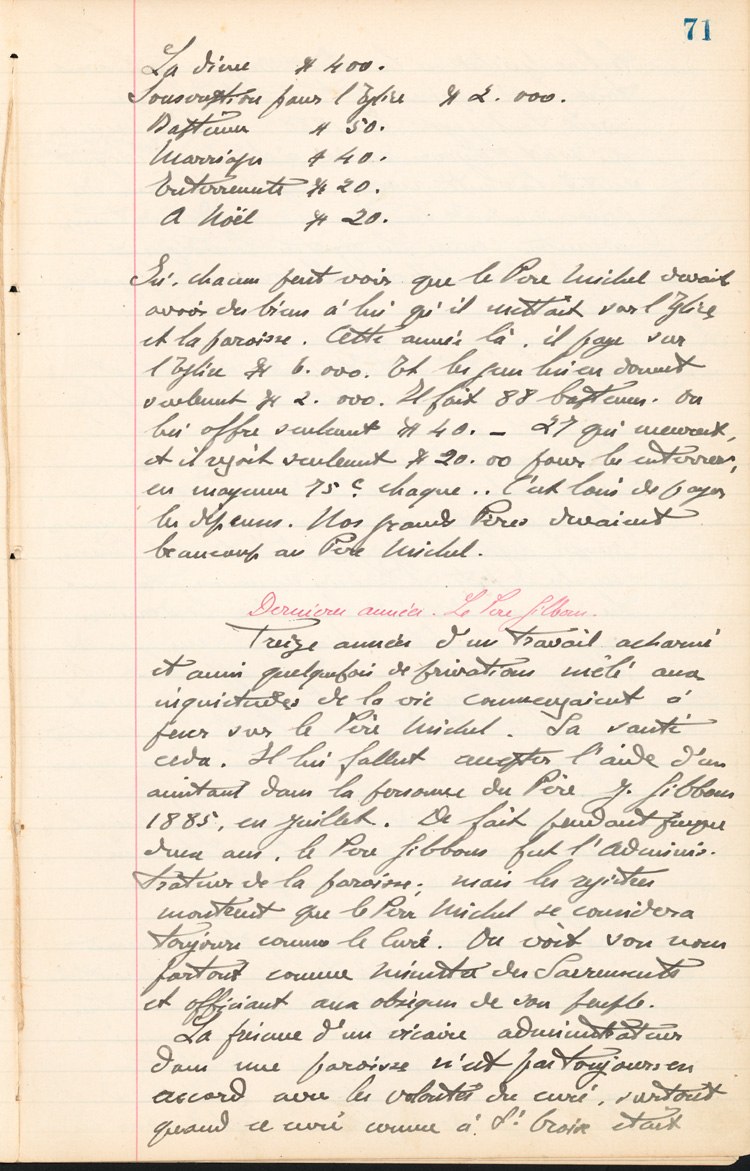 71
La dime $ 400.
Souscription pour l'Eglise $ 2. 000.
Baptêmes $ 50.
Marriages $ 40.
Enterrements $ 20.
A Noël $ 20.
Ici, chacun peut voir que le Pere Michel devait
avoir des biens à lui qu'il mettait sur l'Eglise
et la paroisse. Cette année là, il paye sur
l'Eglise $ 6. 000. Et les gens lui en donnent
seulement $ 2. 000. Il fait 88 baptemes. On
lui offre seulement $ 40. _ 27 qui meurent,
et il reçoit seulement $ 20. 00 pour les enterrer,
en moyenne 75 c. chaque .. C'est loin de payer
les dépenses. Nos grands Pères devaient
beaucoup au Père Michel.
Dernieres années. Le Père Gibbons.
Treize années d'un travail acharné
et aussi quelquefois de privations mêlé aux
inquietudes de la vie commençaient à
peser sur le Père Michel. Sa santé
ceda. Il lui fallut accepter l'aide d'un
assistant dans la personne du Père J. Gibbons
1885, en Juillet. De fait pendant presque
deux ans, le Pere Gibbons fut l'Adminis-
trateur de la paroisse, mais les registres
montrent que le Père Michel se considera
toujours comme le Curé. On voit son nom
partout comme Ministre des Sacrements
et officiant aux obsèques de son peuple.
La présence d'un vicaire administrateur
dans une paroisse n'est pas toujours en
accord avec les volontés du curé, surtout
quand ce curé comme à St Croix était